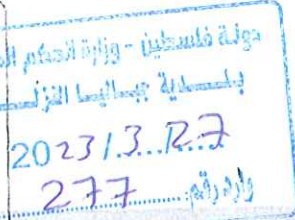 دولة فلسطين - وزارة الحكم الم
بلدية جباليا النزلـ
2023/3/27
وارد رقم 277